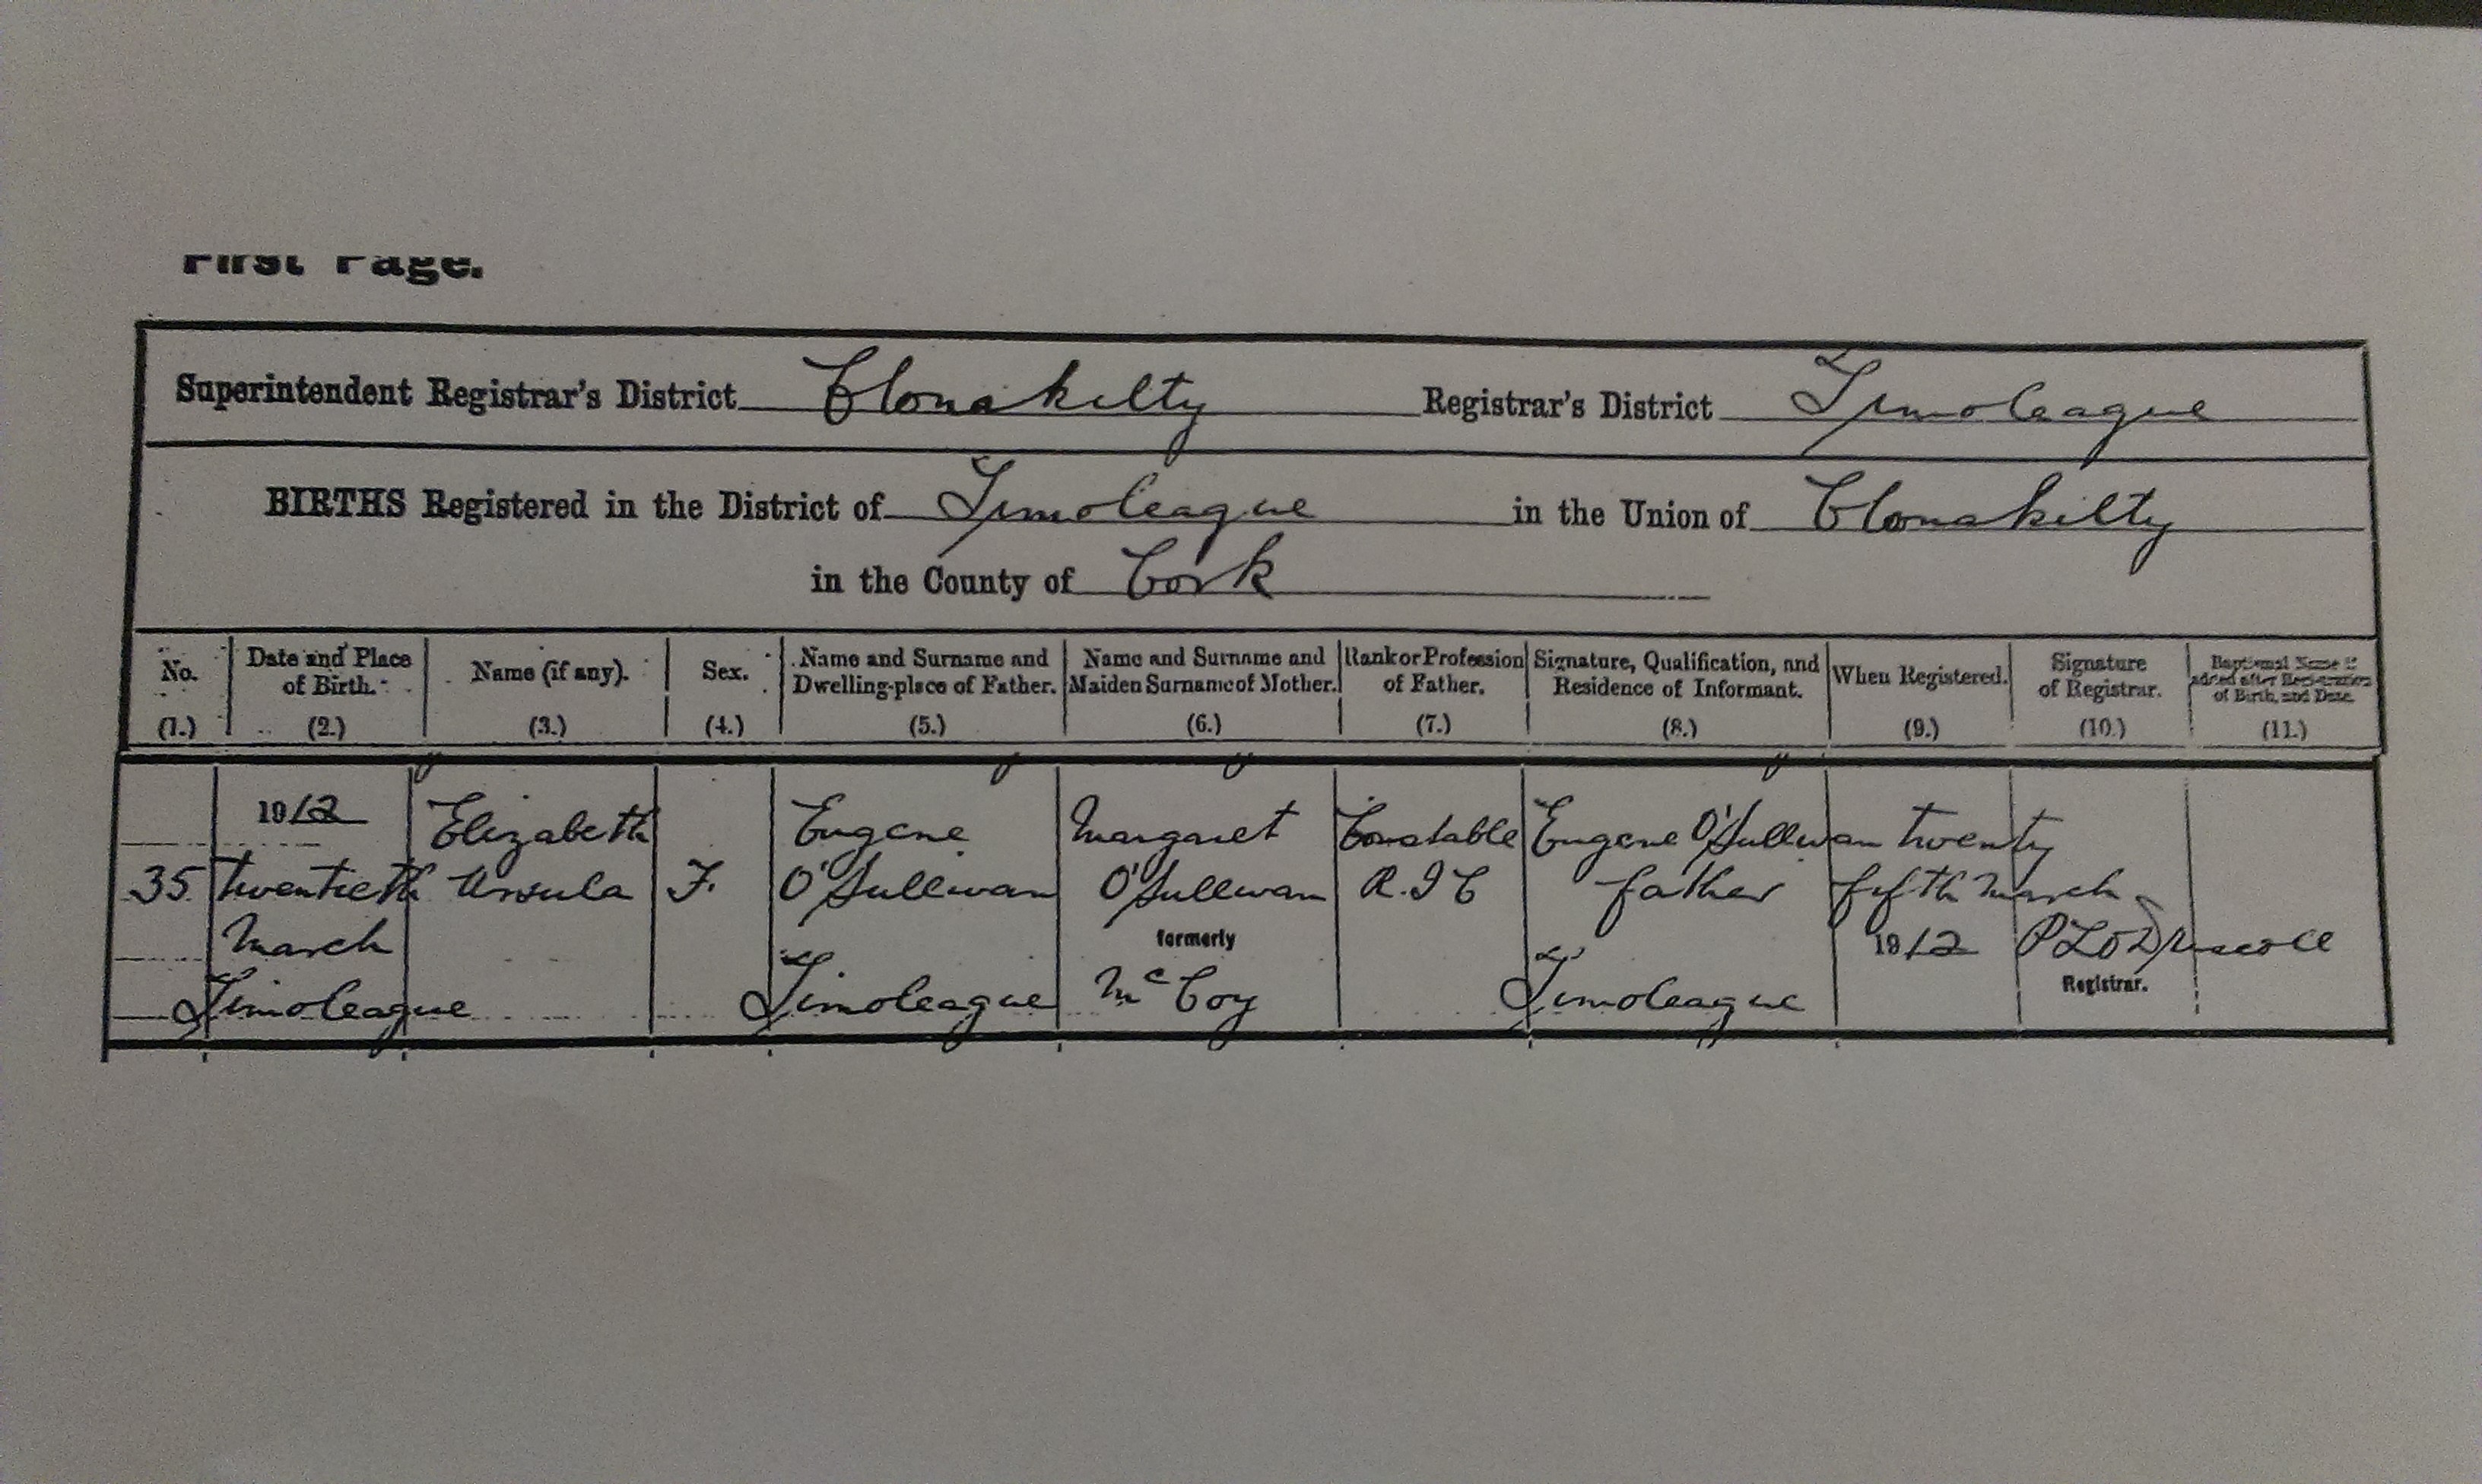 First Page.
Superintendent Registrar's District Clonakilty Registrar's District Timoleague
BIRTHS Registered in the District of Timoleague in the Union of Clonakilty
in the County of Cork
No. (1.)
Date and Place of Birth. (2.)
Name (if any). (3.)
Sex. (4.)
Name and Surname and Dwelling-place of Father. (5.)
Name and Surname and Maiden Surname of Mother. (6.)
Rank or Profession of Father. (7.)
Signature, Qualification, and Residence of Informant. (8.)
When Registered. (9.)
Signature of Registrar. (10.)
Baptismal Name if added after Registration of Birth, and Date. (11.)
35
1912
twentieth
March
Timoleague
Elizabeth
Ursula
F.
Eugene
O'Sullivan
Timoleague
Margaret
O'Sullivan
formerly
McCoy
Constable
R.I.C
Eugene O'Sullivan
father
Timoleague
twenty
fifth March
1912
P L O'Driscoll
Registrar.